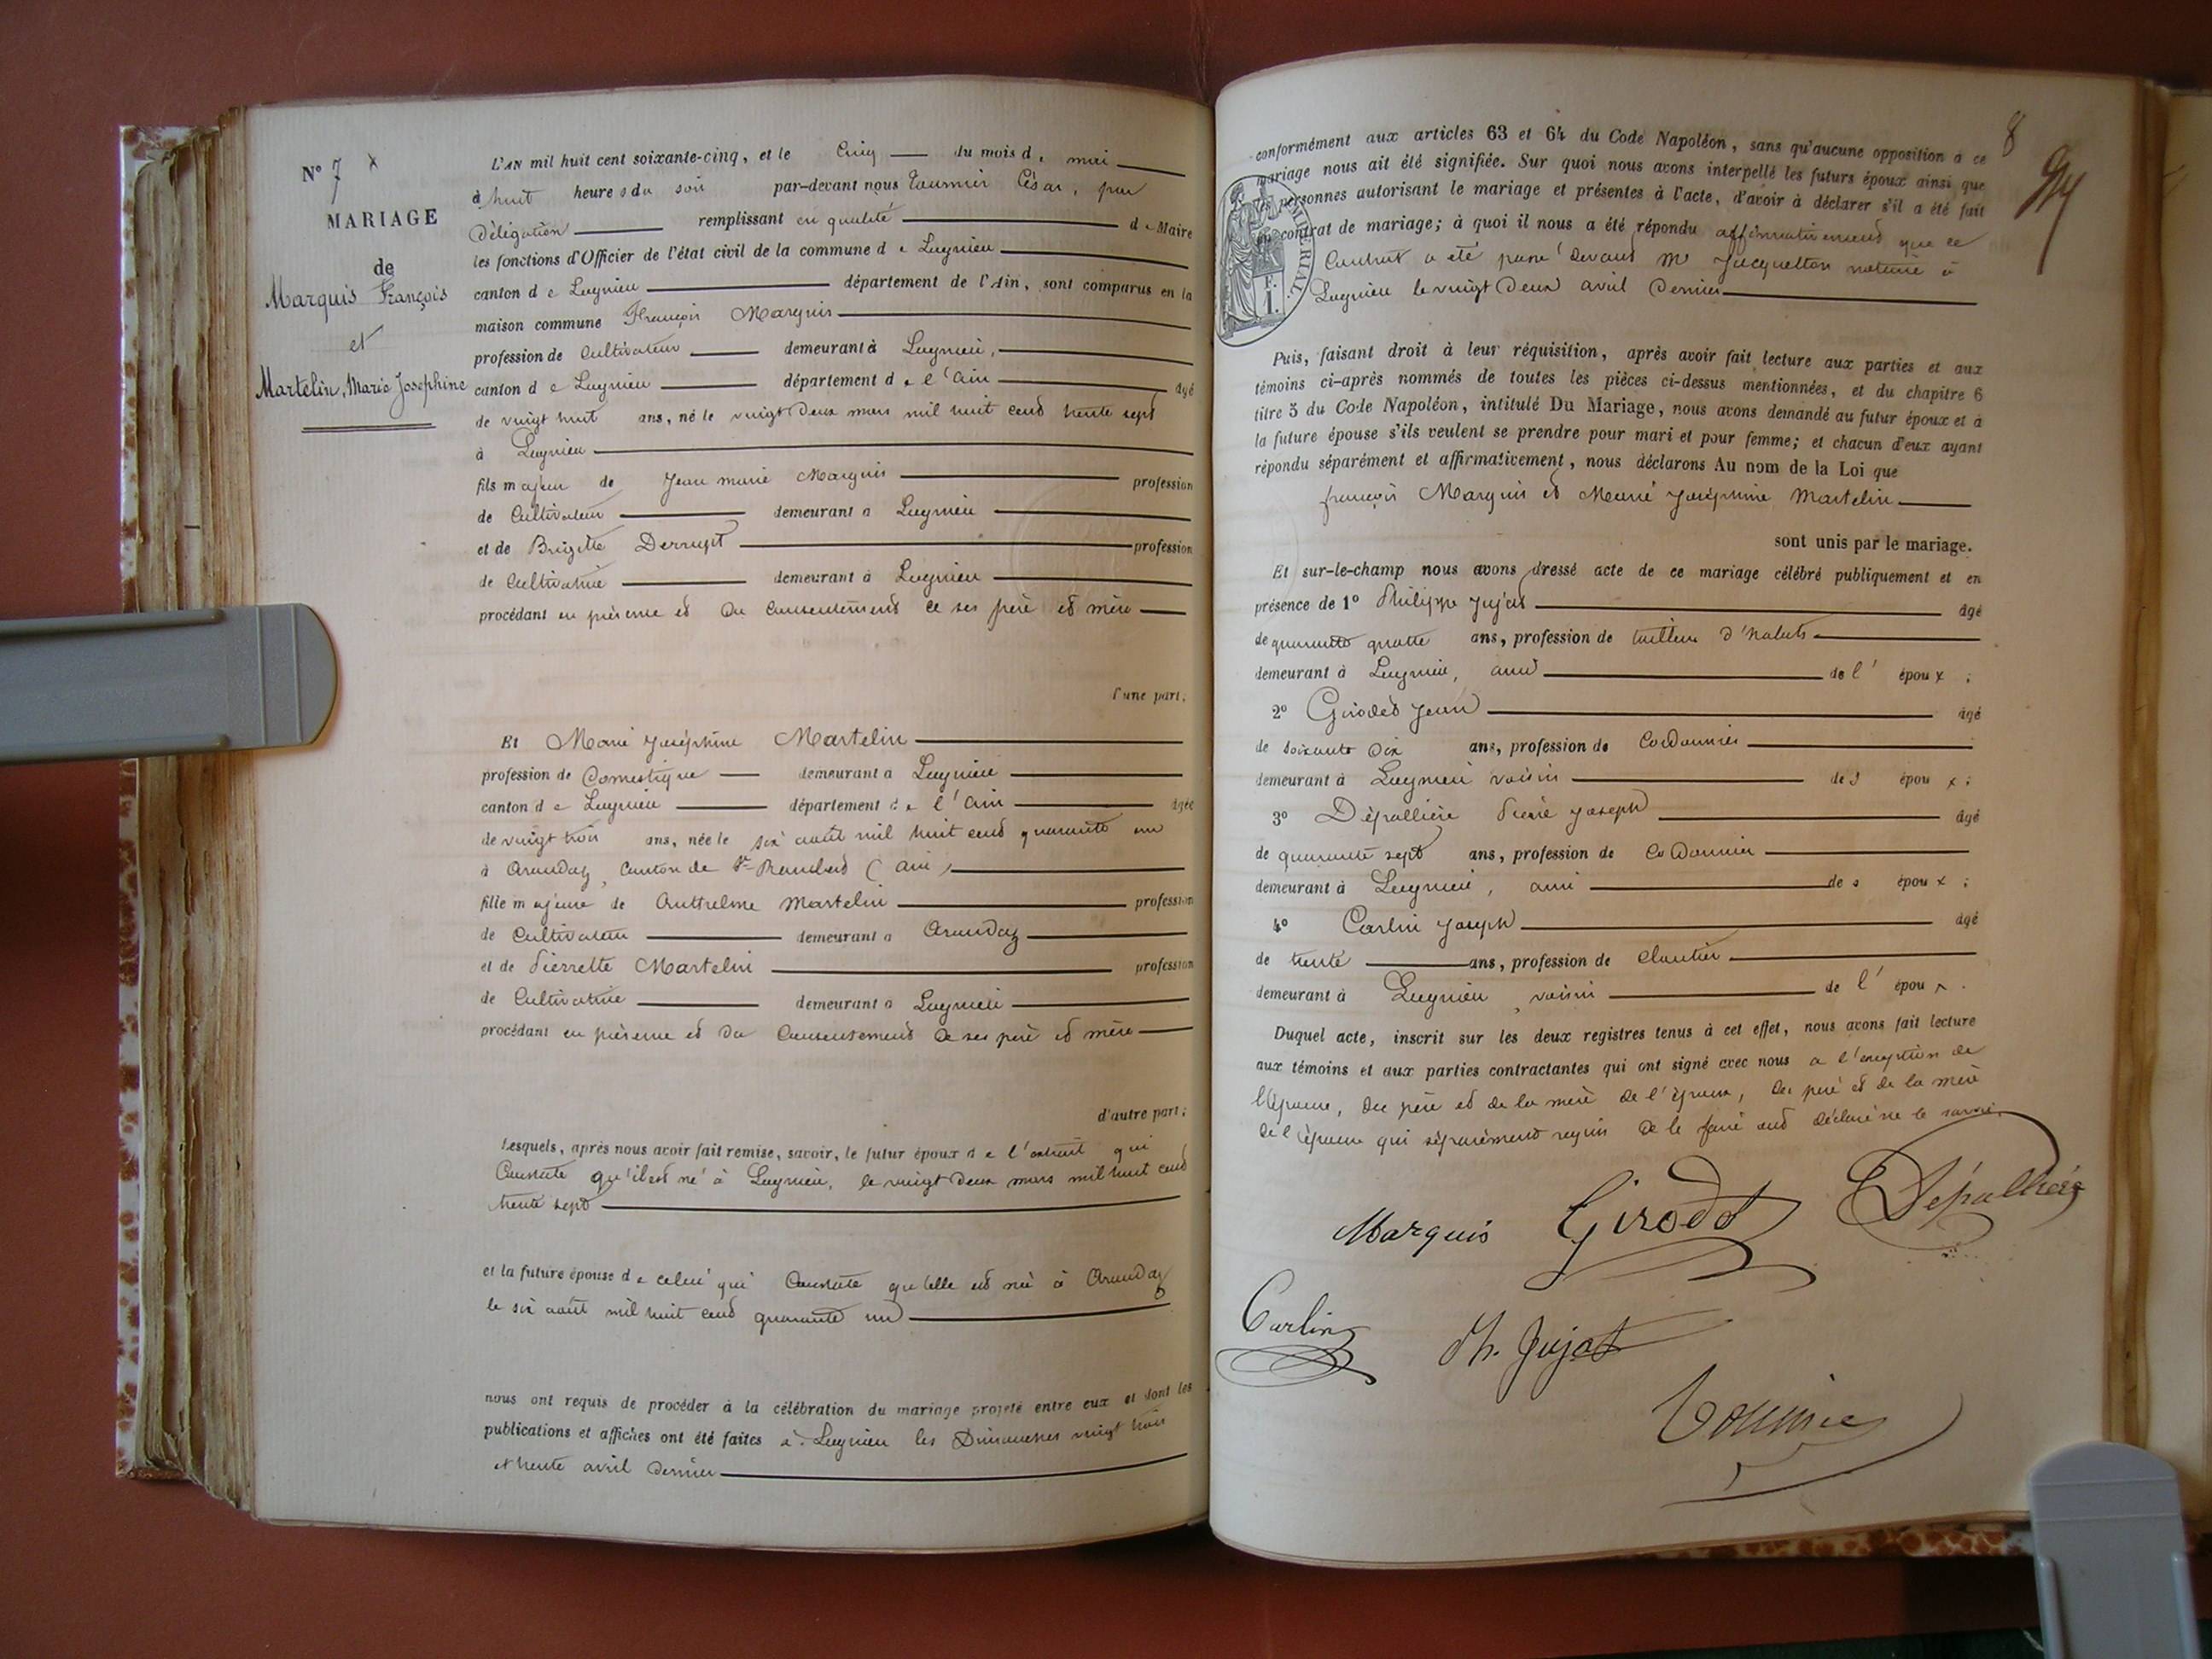 N° 7 x
MARIAGE
de
Marquis François
et
Martelin, Marie Josephine
L'AN mil huit cent soixante-cinq, et le Cinq du mois de mai
à huit heures du soir par-devant nous César, par
Délégation remplissant en qualité de Maire
les fonctions d'Officier de l'état civil de la commune de Lagnieu
canton de Lagnieu département de l'Ain, sont comparus en la
maison commune François Marquis
profession de Cultivateur demeurant à Lagnieu,
canton de Lagnieu département de l'Ain âgé
de vingt huit ans, né le vingt Deux mars mil huit cent trente sept
à Lagnieu
fils majeur de Jean marie Marquis profession
de Cultivateur demeurant à Lagnieu
et de Brigitte Derrupt profession
de Cultivatrice demeurant à Lagnieu
procédant en présence et du Consentement de ses père et mère
d'une part;
Et Marie Joséphine Martelin
profession de Domestique demeurant à Lagnieu
canton de Lagnieu département de l'Ain âgée
de vingt trois ans, née le six août mil huit cent quarante un
à Arandaz, Canton de St Rambert (Ain)
fille majeure de Anthelme Martelin profession
de Cultivateur demeurant à Arandaz
et de Pierrette Martelin profession
de Cultivatrice demeurant à Lagnieu
procédant en présence et du Consentement de ses père et mère
d'autre part;
Lesquels, après nous avoir fait remise, savoir, le futur époux de l'extrait qui
Constate qu'il est né à Lagnieu, le vingt Deux mars mil huit cent
trente sept
et la future épouse de celui qui Constate qu'elle est née à Arandaz
le six août mil huit cent quarante un
nous ont requis de procéder à la célébration du mariage projeté entre eux et dont les
publications et affiches ont été faites à Lagnieu les Dimanches vingt trois
et trente avril dernier
8
conformément aux articles 63 et 64 du Code Napoléon, sans qu'aucune opposition à ce
mariage nous ait été signifiée. Sur quoi nous avons interpellé les futurs époux ainsi que
les personnes autorisant le mariage et présentes à l'acte, d'avoir à déclarer s'il a été fait
un contrat de mariage; à quoi il nous a été répondu affirmativement que ce
Contrat a été passé devant Me Jacquetton notaire à
Lagnieu le vingt Deux avril Dernier
Puis, faisant droit à leur réquisition, après avoir fait lecture aux parties et aux
témoins ci-après nommés de toutes les pièces ci-dessus mentionnées, et du chapitre 6
titre 5 du Code Napoléon, intitulé Du Mariage, nous avons demandé au futur époux et à
la future épouse s'ils veulent se prendre pour mari et pour femme; et chacun d'eux ayant
répondu séparément et affirmativement, nous déclarons Au nom de la Loi que
françois Marquis et Marie Joséphine Martelin
sont unis par le mariage.
Et sur-le-champ nous avons dressé acte de ce mariage célébré publiquement et en
présence de 1° Philippe Jujat âgé
de quarante quatre ans, profession de tailleur d'habits
demeurant à Lagnieu, ami de l'époux;
2° Girodet Jean âgé
de soixante Dix ans, profession de Cordonnier
demeurant à Lagnieu voisin des époux;
3° Dépallière Pierre Joseph âgé
de quarante sept ans, profession de Cordonnier
demeurant à Lagnieu, ami des époux;
4° Carlin Joseph âgé
de trente ans, profession de Cloutier
demeurant à Lagnieu, voisin de l'époux.
Duquel acte, inscrit sur les deux registres tenus à cet effet, nous avons fait lecture
aux témoins et aux parties contractantes qui ont signé avec nous à l'exception de
l'épouse, du père et de la mère de l'époux, du père et de la mère
de l'épouse qui séparément requis de le faire ont déclaré ne le savoir.
Marquis Girodet Dépallière
Carlin Ph. Jujat